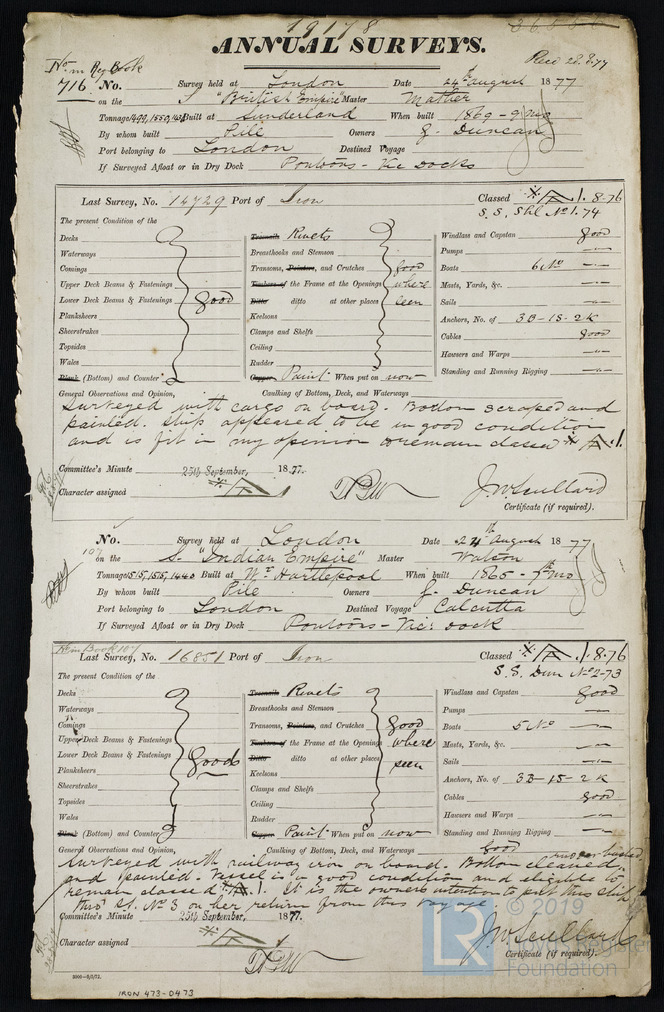 19178
ANNUAL SURVEYS.
No. in Reg Book
Recd 28.8.77
716 No. Survey held at London Date 24th august 1877
on the S "British Empire" Master Mather
Tonnage 1499, 1550, Built at Sunderland When built 1869 - 9 mo
By whom built Pile Owners J. Duncan
Port belonging to London Destined Voyage
If Surveyed Afloat or in Dry Dock Pontoons - Vic Docks
Last Survey, No. 14729 Port of Iron Classed A.1. 8-76
S.S. Shl No 1. 74
The present Condition of the
Decks
Waterways
Comings
Upper Deck Beams & Fastenings
Lower Deck Beams & Fastenings good
Planksheers
Sheerstrakes
Topsides
Wales
Plank (Bottom) and Counter
Treenails Rivets
Breasthooks and Stemson
Transoms, Pointers, and Crutches good
Timbers of the Frame at the Openings where
Ditto ditto at other places seen
Keelsons
Clamps and Shelfs
Ceiling
Rudder
Copper Paint When put on now
Windlass and Capstan good
Pumps —"—
Boats 6 No —"—
Masts, Yards, &c. —"—
Sails —"—
Anchors, No. of 3B-1S-2K
Cables good
Hawsers and Warps —"—
Standing and Running Rigging —"—
General Observations and Opinion, Caulking of Bottom, Deck, and Waterways
Surveyed with cargo on board. Bottom scraped and
painted. Ship appeared to be in good condition
and is fit in my opinion to remain classed A.1.
Committee's Minute 25th September, 1877.
Character assigned A 1
J.W. Scullard
Certificate (if required).
No. Survey held at London Date 24th August 1877
107 on the S. "Indian Empire" Master Watson
Tonnage 1515, 1515, 1440 Built at Wt Hartlepool When built 1865 - 7th mo
By whom built Pile Owners J. Duncan
Port belonging to London Destined Voyage Calcutta
If Surveyed Afloat or in Dry Dock Pontoons - Vic: dock
No in Book 107
Last Survey, No. 16851 Port of Iron Classed A.1. 8-76
S.S. Dun No 2-73
The present Condition of the
Decks
Waterways
Comings
Upper Deck Beams & Fastenings
Lower Deck Beams & Fastenings good
Planksheers
Sheerstrakes
Topsides
Wales
Plank (Bottom) and Counter
Treenails Rivets
Breasthooks and Stemson
Transoms, Pointers, and Crutches good
Timbers of the Frame at the Openings where
Ditto ditto at other places seen
Keelsons
Clamps and Shelfs
Ceiling
Rudder
Copper Paint When put on now
Windlass and Capstan good
Pumps —"—
Boats 5 No —"—
Masts, Yards, &c. —"—
Sails —"—
Anchors, No. of 3B-1S-2K
Cables good
Hawsers and Warps —"—
Standing and Running Rigging —"—
General Observations and Opinion, Caulking of Bottom, Deck, and Waterways good
Surveyed with railway iron on board. Bottom cleaned,
and painted. Vessel is a good condition and eligible to
remain classed A.1. It is the owners intention to put this ship
thro' St. No 3 on her return from this voyage
Committee's Minute 25th September, 1877.
Character assigned A 1
J.W. Scullard
Certificate (if required).
IRON 473-0473
LR © 2019
Lloyd's Register
Foundation